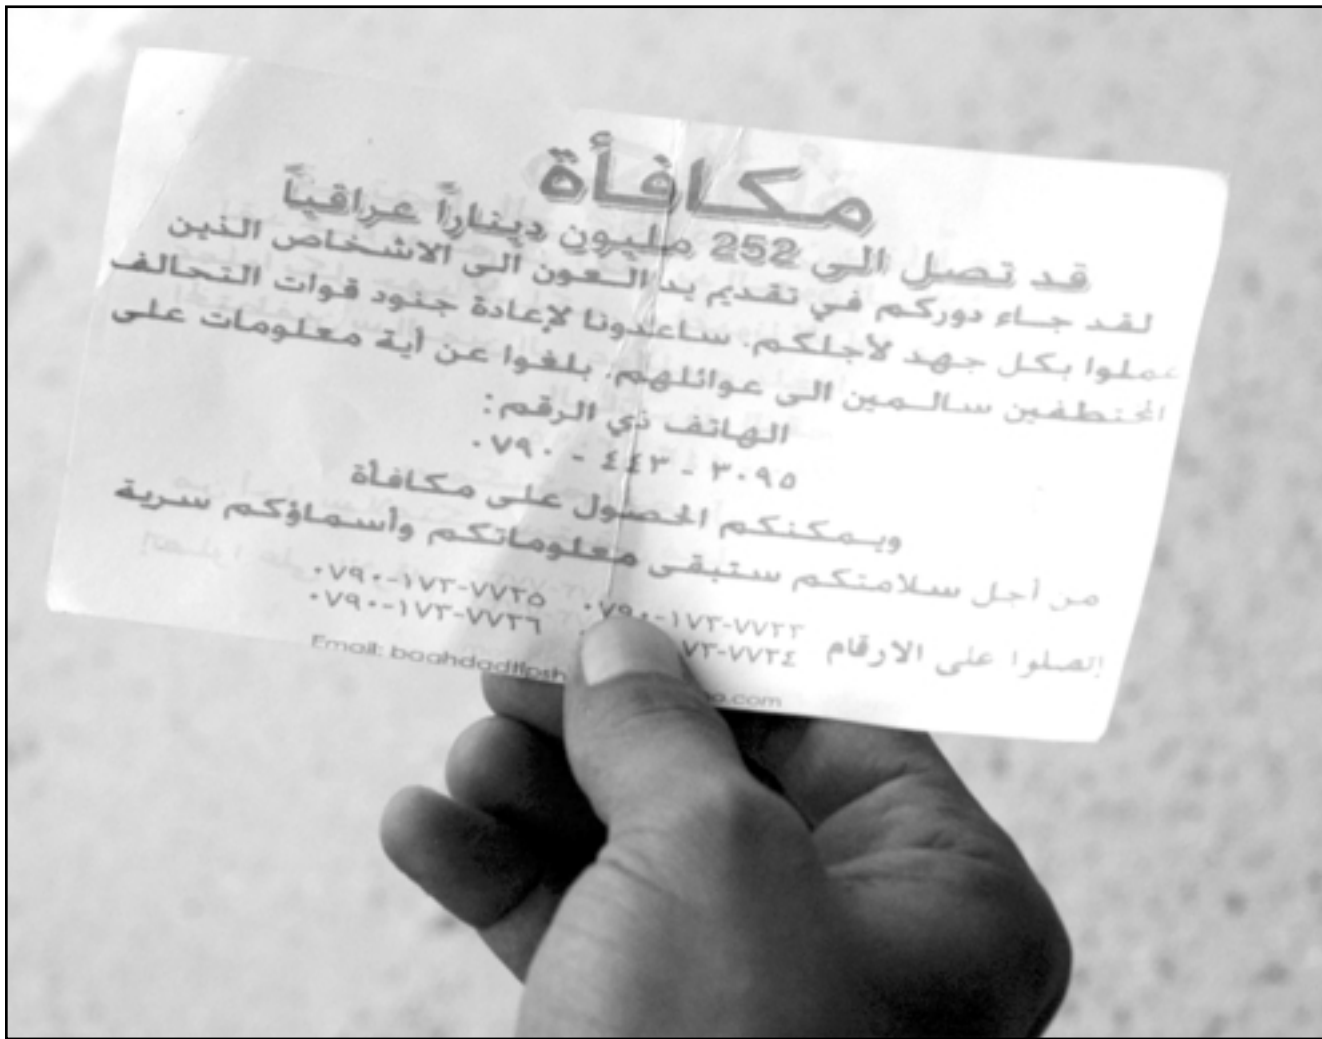 مكافأة
قد تصل الى 252 مليون ديناراً عراقياً
لقد جاء دوركم في تقديم يد العون الى الاشخاص الذين
عملوا بكل جهد لأجلكم. ساعدونا لإعادة جنود قوات التحالف
المختطفين سالمين الى عوائلهم. بلغوا عن أية معلومات على
الهاتف ذي الرقم:
٠٧٩٠ - ٤٤٣ - ٣٠٩٥
ويمكنكم الحصول على مكافأة
من أجل سلامتكم ستبقى معلوماتكم وأسماؤكم سرية
٠٧٩٠-١٧٣-٧٧٣٥
إتصلوا على الارقام ٠٧٩٠-١٧٣-٧٧٣٦
Email: